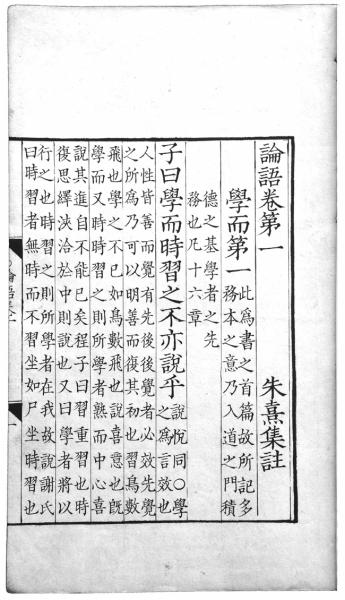 論語卷第一 朱熹集註
學而第一
此為書之首篇故所記多
務本之意乃入道之門積
德之基學者之先
務也凡十六章
子曰學而時習之不亦說乎
說悅同○學
之為言效也
人性皆善而覺有先後後覺者必效先覺
之所為乃可以明善而復其初也習鳥數
飛也學之不已如鳥數飛也說喜意也既
學而又時時習之則所學者熟而中心喜
說其進自不能已矣程子曰習重習也時
復思繹浹洽於中則說也又曰學者將以
行之也時習之則所學者在我故說謝氏
曰時習者無時而不習坐如尸坐時習也